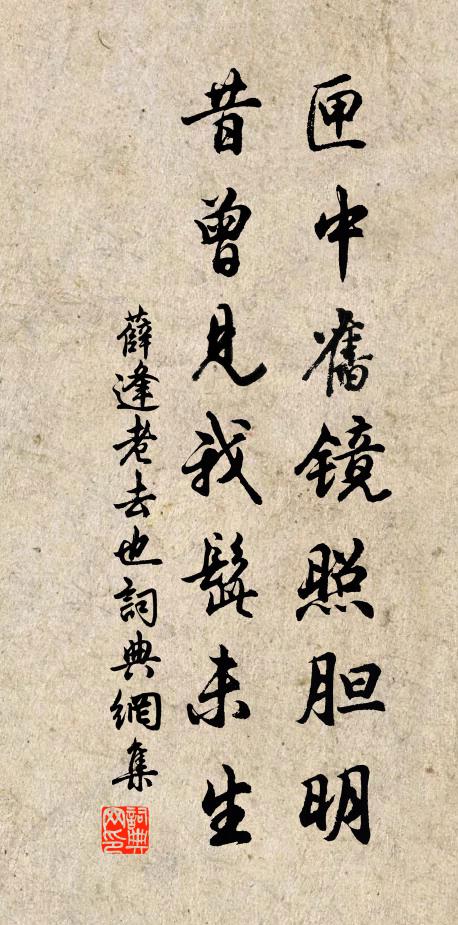 匣中舊镜照胆明
昔曾見我髭未生
薛逢老去也詞典網集
詞典
网印